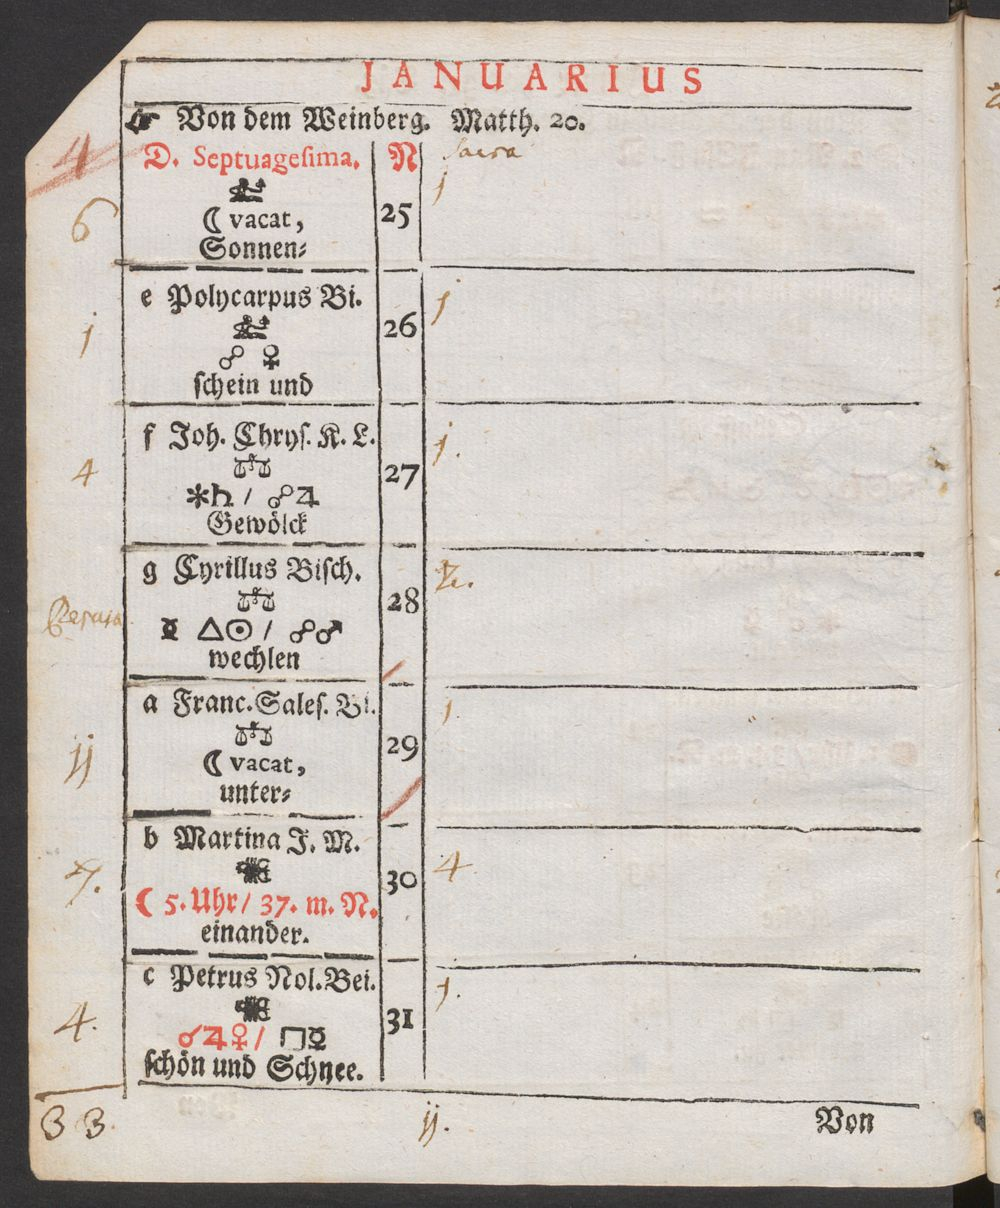 JANUARIUS
☞ Von dem Weinberg. Matth. 20.
4
D. Septuagesima. N
Sacra
6
☾ vacat,
25
j
Sonnen⸗
e Polycarpus Bi.
26
j
j
☍ ♀
schein und
f Joh. Chrys. K. L.
♎
27
j.
4
✶♄ / ☍♃
Gewölck
g Cyrillus Bisch.
♎
28
☿ △☉ / ☍♂
wechlen
a Franc. Sales. Bi.
♎
29
j.
ij
☾ vacat,
unter⸗
b Martina J. M.
30
4
7.
☾ 5. Uhr / 37. m. N.
einander.
c Petrus Nol. Bei.
31
j.
4.
☌♃♀ / □☿
schön und Schnee.
33.
ij.
Von